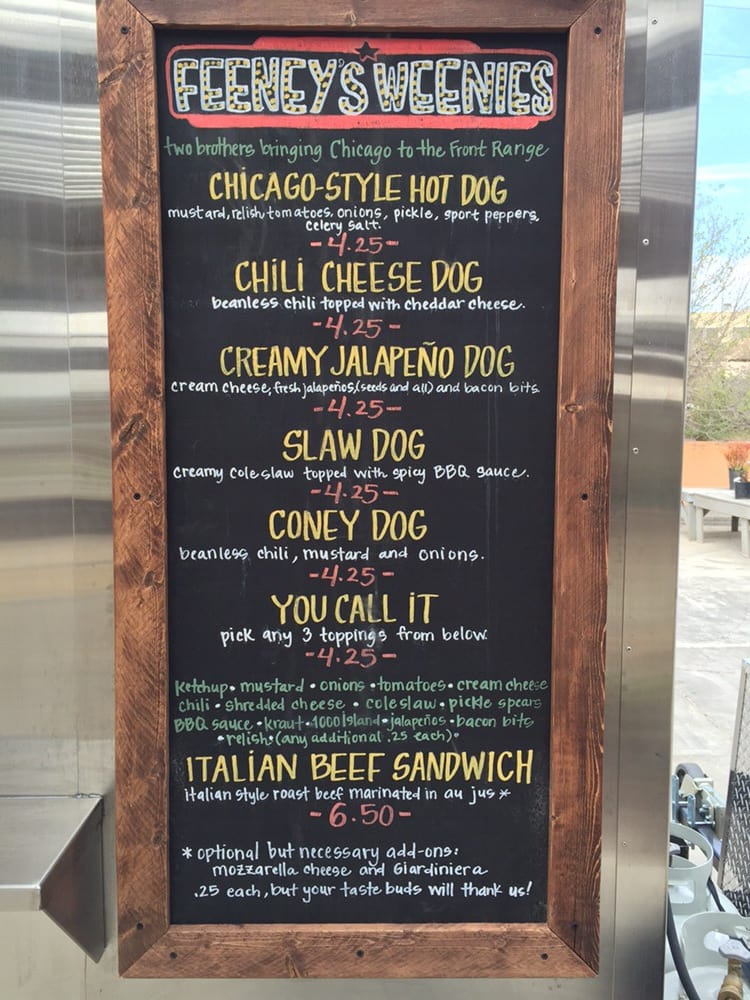 FEENEY'S WEENIES
two brothers bringing Chicago to the Front Range
CHICAGO-STYLE HOT DOG
mustard, relish, tomatoes, onions, pickle, sport peppers,
celery salt.
-4.25-
CHILI CHEESE DOG
beanless chili topped with cheddar cheese.
-4.25-
CREAMY JALAPEÑO DOG
cream cheese, fresh jalapeños, (seeds and all) and bacon bits
-4.25-
SLAW DOG
creamy coleslaw topped with spicy BBQ sauce.
-4.25-
CONEY DOG
beanless chili, mustard and onions.
-4.25-
YOU CALL IT
pick any 3 toppings from below
-4.25-
Ketchup • mustard • onions • tomatoes • cream cheese
chili • shredded cheese • coleslaw • pickle spears
BBQ sauce • kraut • 1000 Island • jalapeños • bacon bits
• relish • (any additional .25 each) •
ITALIAN BEEF SANDWICH
italian style roast beef marinated in au jus *
-6.50-
* optional but necessary add-ons:
mozzarella cheese and Giardiniera
.25 each, but your taste buds will thank us!